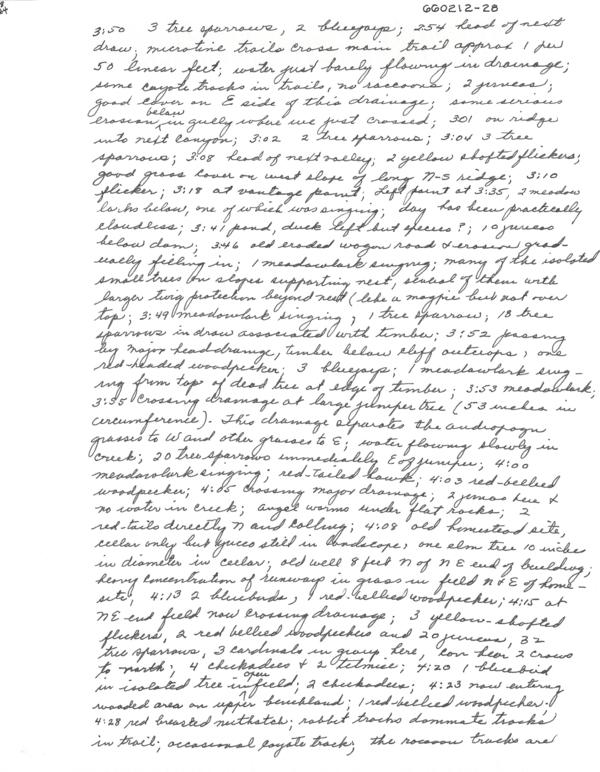 660212-28
3:50 3 tree sparrows, 2 bluejays; 254 head of next
draw; microtine trails cross main trail approx 1 per
50 linear feet; water just barely flowing in drainage;
some coyote tracks in trails, no raccoons; 2 juncos;
good cover on E side of this drainage; some serious
erosion below in gully where we just crossed; 301 on ridge
into next canyon; 3:02 2 tree sparrows; 3:04 3 tree
sparrows; 3:08 head of next valley; 2 yellow shafted flickers;
good grass cover on west slope of long N-S ridge; 3:10
flicker; 3:18 at vantage point, left point at 3:35, 2 meadow
larks below, one of which was singing; day has been practically
cloudless; 3:41 pond, duck left but species?; 10 juncos
below dam; 3:46 old eroded wagon road & erosion grad-
ually filling in; 1 meadowlark singing; many of the isolated
small trees on slopes supporting nest, several of them with
larger twig protection beyond nest (like a magpie but not over
top; 3:49 meadowlark singing; 1 tree sparrow; 18 tree
sparrows in draw associated with timber; 3:52 passing
by major head drainge, timber below cliff outcrops; one
red-headed woodpecker; 3 bluejays; 1 meadowlark sing-
ing from top of dead tree at edge of timber; 3:53 meadowlark;
3:55 crossing drainage at large juniper tree (53 inches in
circumference). This drainage separates the andropogn
grasses to W and other grasses to E; water flowing slowly in
creek; 20 tree sparrows immediately E of juniper; 4:00
meadowlark singing; red-tailed hawk; 4:03 red-bellied
woodpecker; 4:05 crossing major drainage; 2 juncos here &
no water in creek; angel worms under flat rocks; 2
red-tails directly N and calling; 4:08 old homestead site,
cellar only but yucco still in landscape; one elm tree 10 inches
in diameter in cellar; old well 8 feet N of NE end of building;
heavy concentration of runways in grass in field N & E of home-
site; 4:13 2 bluebirds, 1 red-bellied woodpecker; 4:15 at
NE end field now crossing drainage; 3 yellow-shafted
flickers, 2 red bellied woodpeckers and 20 juncos, 32
tree sparrows, 3 cardinals in group here, can hear 2 crows
to north; 4 chickadees & 2 titmice; 4:20 1 bluebird
in isolated tree in open field; 2 chickadees; 4:23 now entering
wooded area on upper benchland; 1 red-bellied woodpecker;
4:28 red breasted nuthatch; rabbit tracks dominate tracks
in trail; occasional coyote track; the racoon tracks are